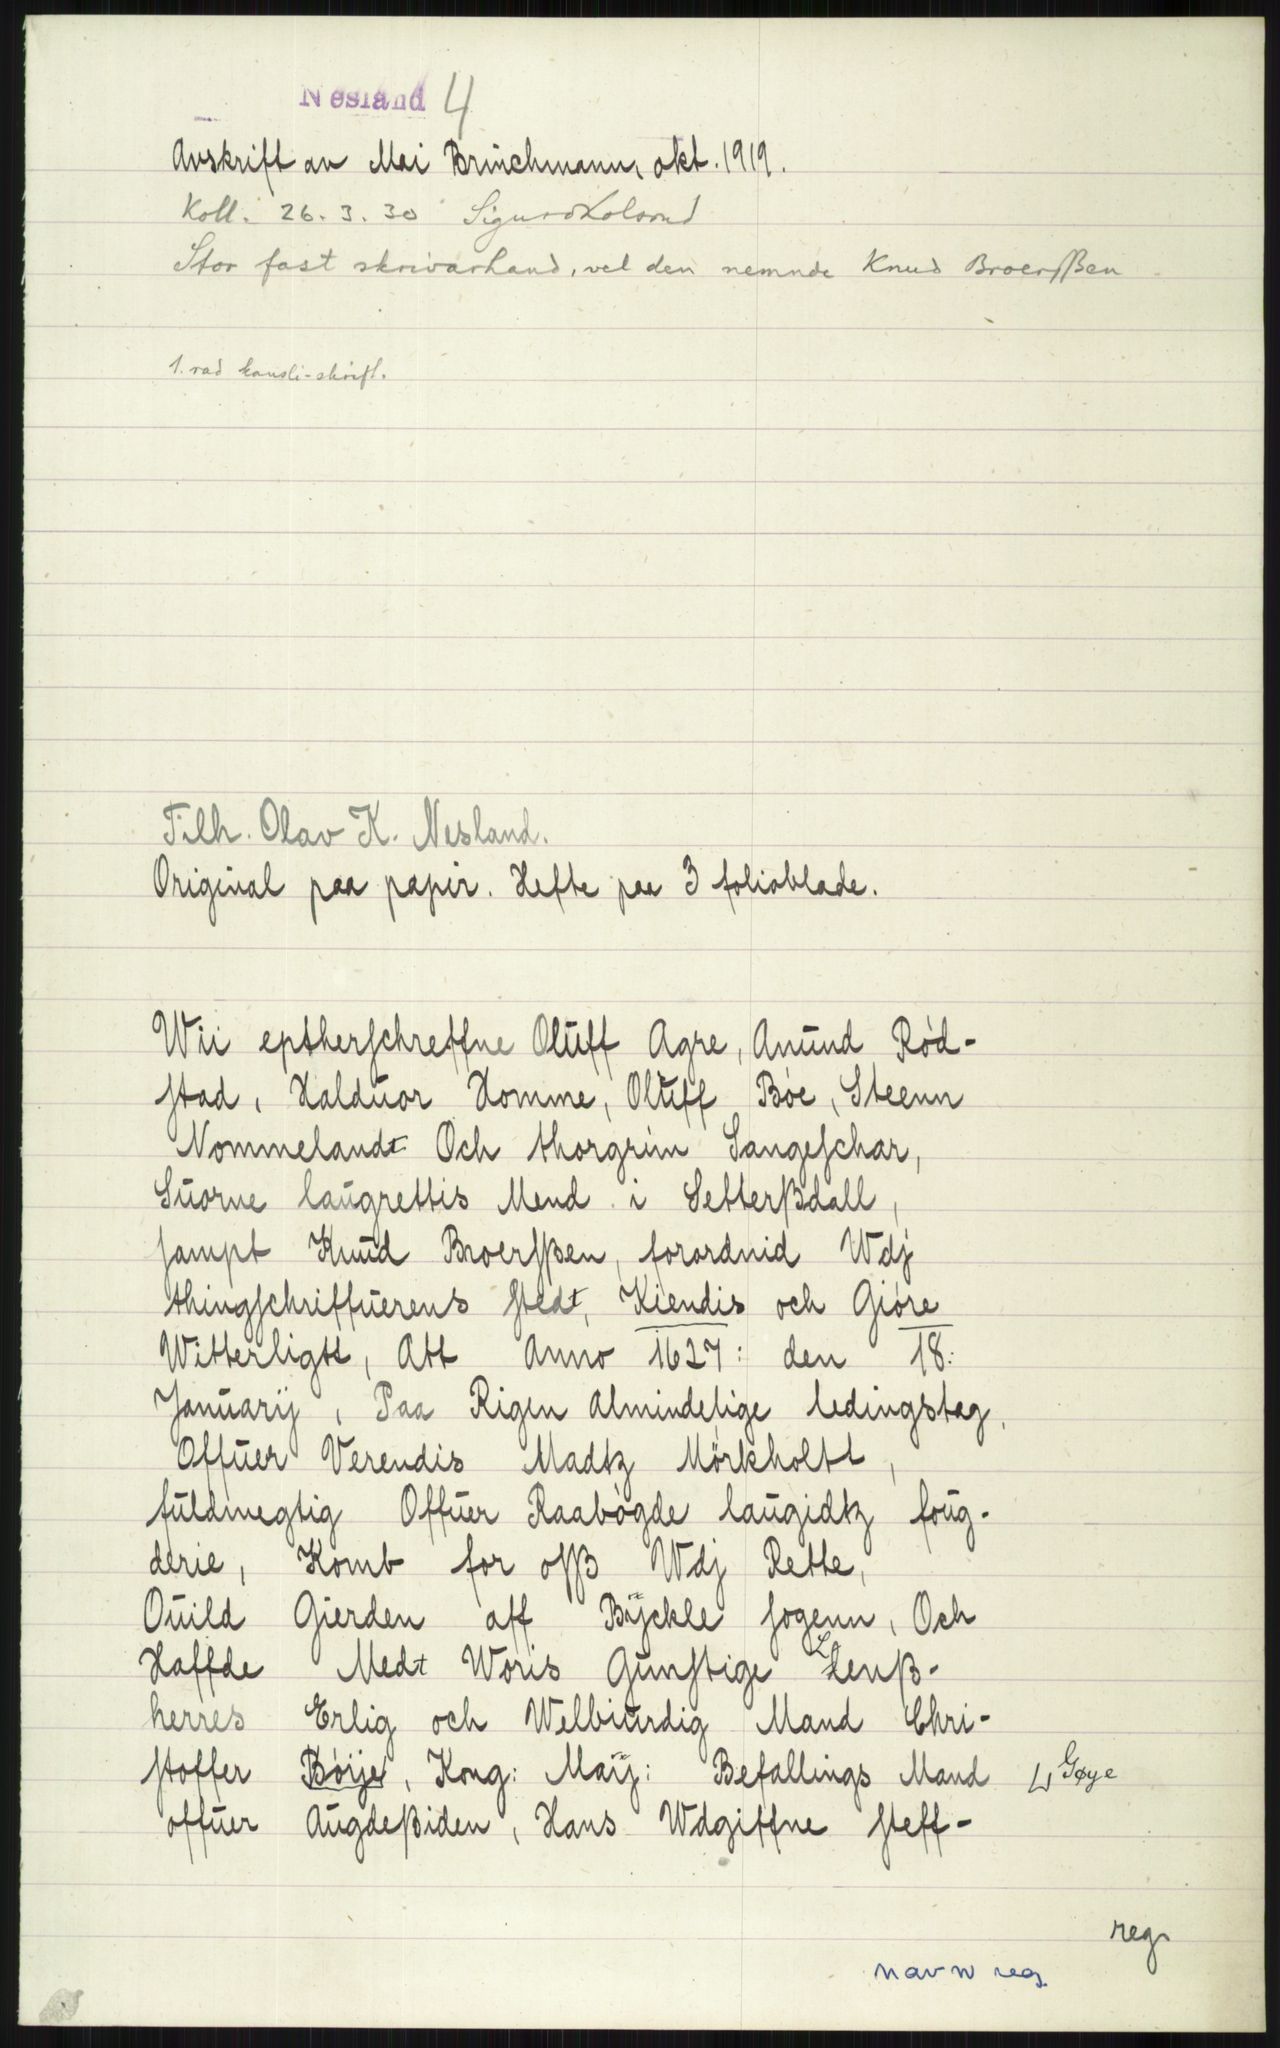 Nesland 4
Avskrift av Mai Brinchmann, okt. 1919.
Koll. 26. 3. 30 Sigurd Kolsrud
Stor fast skrivarhand, vel den nemnde Knud Broersßen
1. rad kansli-skrift.
Tilh. Olav K. Nesland.
Original paa papir. Hefte paa 3 folioblade.
Wii eptherschreffne Olŭff Agre, Anŭnd Rød-
stad, Haldŭor Homme, Olŭff Bøe, Steenn
Nommelandt Och thorgrim Langeschar,
Sŭorne laŭgrettis Mend i Setterßdall,
sampt Knŭd Broersßen, forordnid Wdj
thingschriffŭerens sted, Kiendis och Giøre
Witterligtt, Att Anno 1627: den 18:
Janŭarij, Paa Rigen almindelige ledingstag,
Offŭer Verendis Madtz Mørkholtt,
fŭldmegtig Offŭer Raabøgde laŭgidtz foŭg-
derie, Komb for osß Wdj Rette,
Oŭild Gierden aff Bÿckle sogenn, Och
Haffde Medt Woris Gŭnstige Lenß-
herres Erlig och Welbiŭrdig Mand Chri-
stoffer Børje, Kong: Maÿ: Befallings Mand ⊔ Gøye
offŭer Aŭgdeßiden, Hans Wdgiffne steff-
reg.
navn reg.